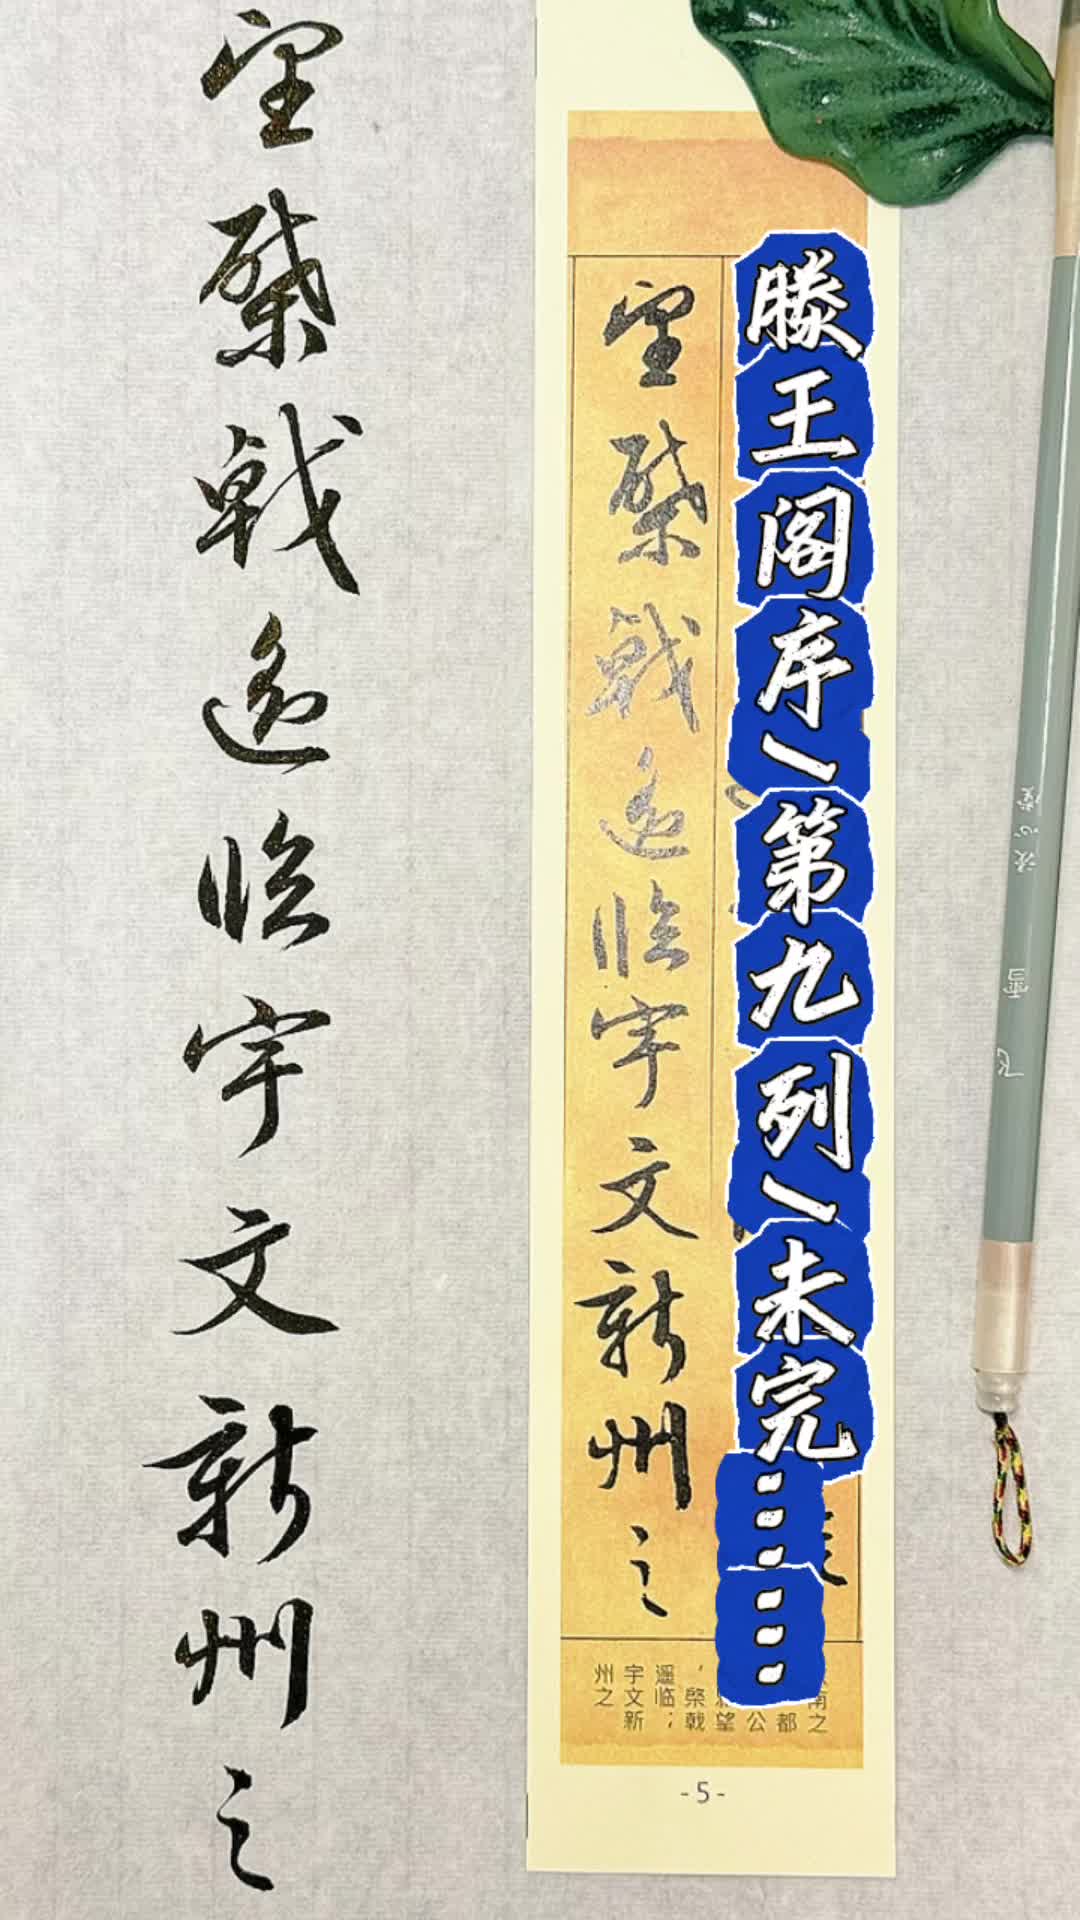 望棨戟遥临宇文新州之
望棨戟遥临宇文新州之
滕王阁序\第九列\未完……
南之
都
公
望
，棨戟
遥临；
宇文新
州之
-5-
飞雪